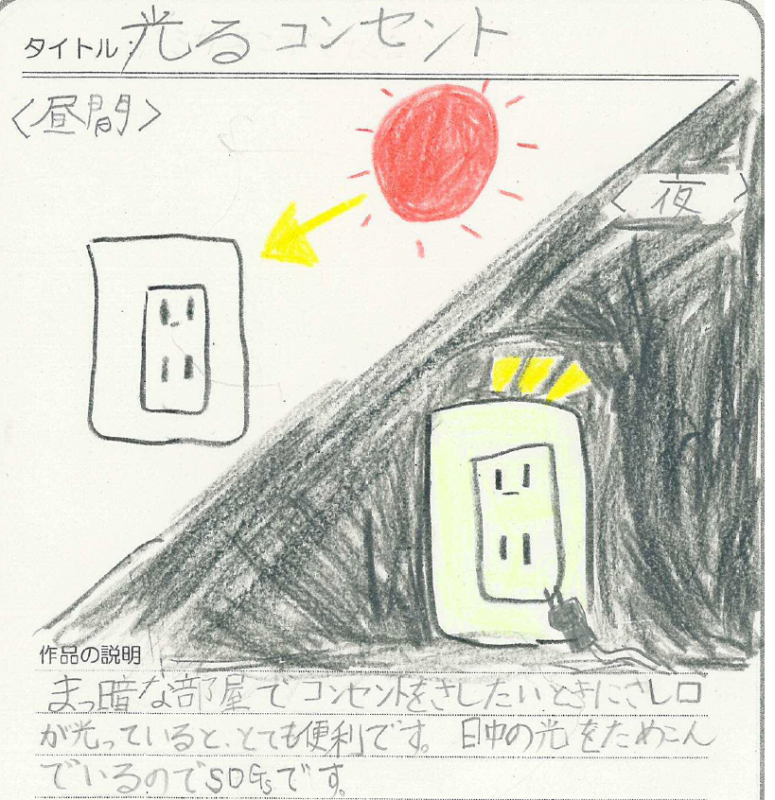 タイトル:光るコンセント
〈昼間〉
〈夜〉
作品の説明
まっ暗な部屋でコンセントをさしたいときにさし口
が光っていると、とても便利です。日中の光をためこん
でいるのでSDGsです。